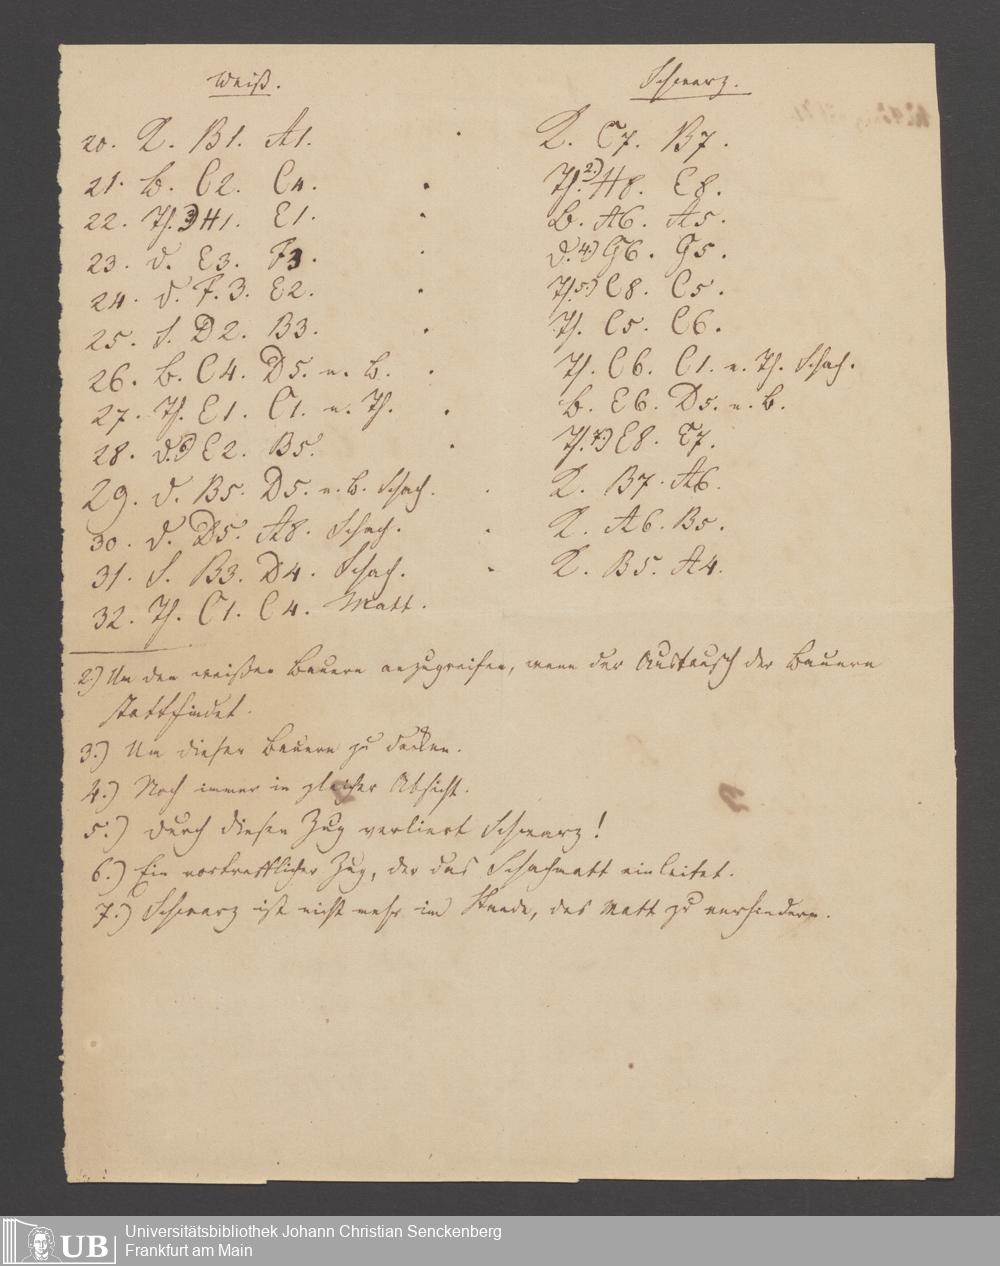 Weiß. Schwarz.
20. K. B1. A1. K. C7. B7.
21. b. C2. C4. Th. 2.) H8. E8.
22. Th. 3) H1. E1. b. A6. A5.
23. d. E3. F3. d. 4) G6. G5.
24. d. F. 3. E2. Th. 5.) C8. C5.
25. S. D2. B3. Th. C5. C6.
26. b. C4. D5. n. b. Th. C6. C1. n. Th. Schach.
27. Th. E1. C1. n. Th. b. E6. D5. n. b.
28. d. 6) E2. B5. Th. 7.) E8. E7.
29. d. B5. D5. n. b. Schach. K. B7. A6.
30. d. D5. A8. Schach. K. A6. B5.
31. S. B3. D4. Schach. K. B5. A4.
32. Th. C1. C4. Matt.
2.) Um den weißen Bauern anzugreifen, wenn der Austausch der Bauern
stattfindet.
3.) Um diesen Bauern zu decken.
4.) Noch immer in gleicher Absicht.
5.) Durch diesen Zug verliert Schwarz!
6.) Ein vortrefflicher Zug, der das Schachmatt einleitet.
7.) Schwarz ist nicht mehr im Stande, das Matt zu verhindern.
UB
Universitätsbibliothek Johann Christian Senckenberg
Frankfurt am Main